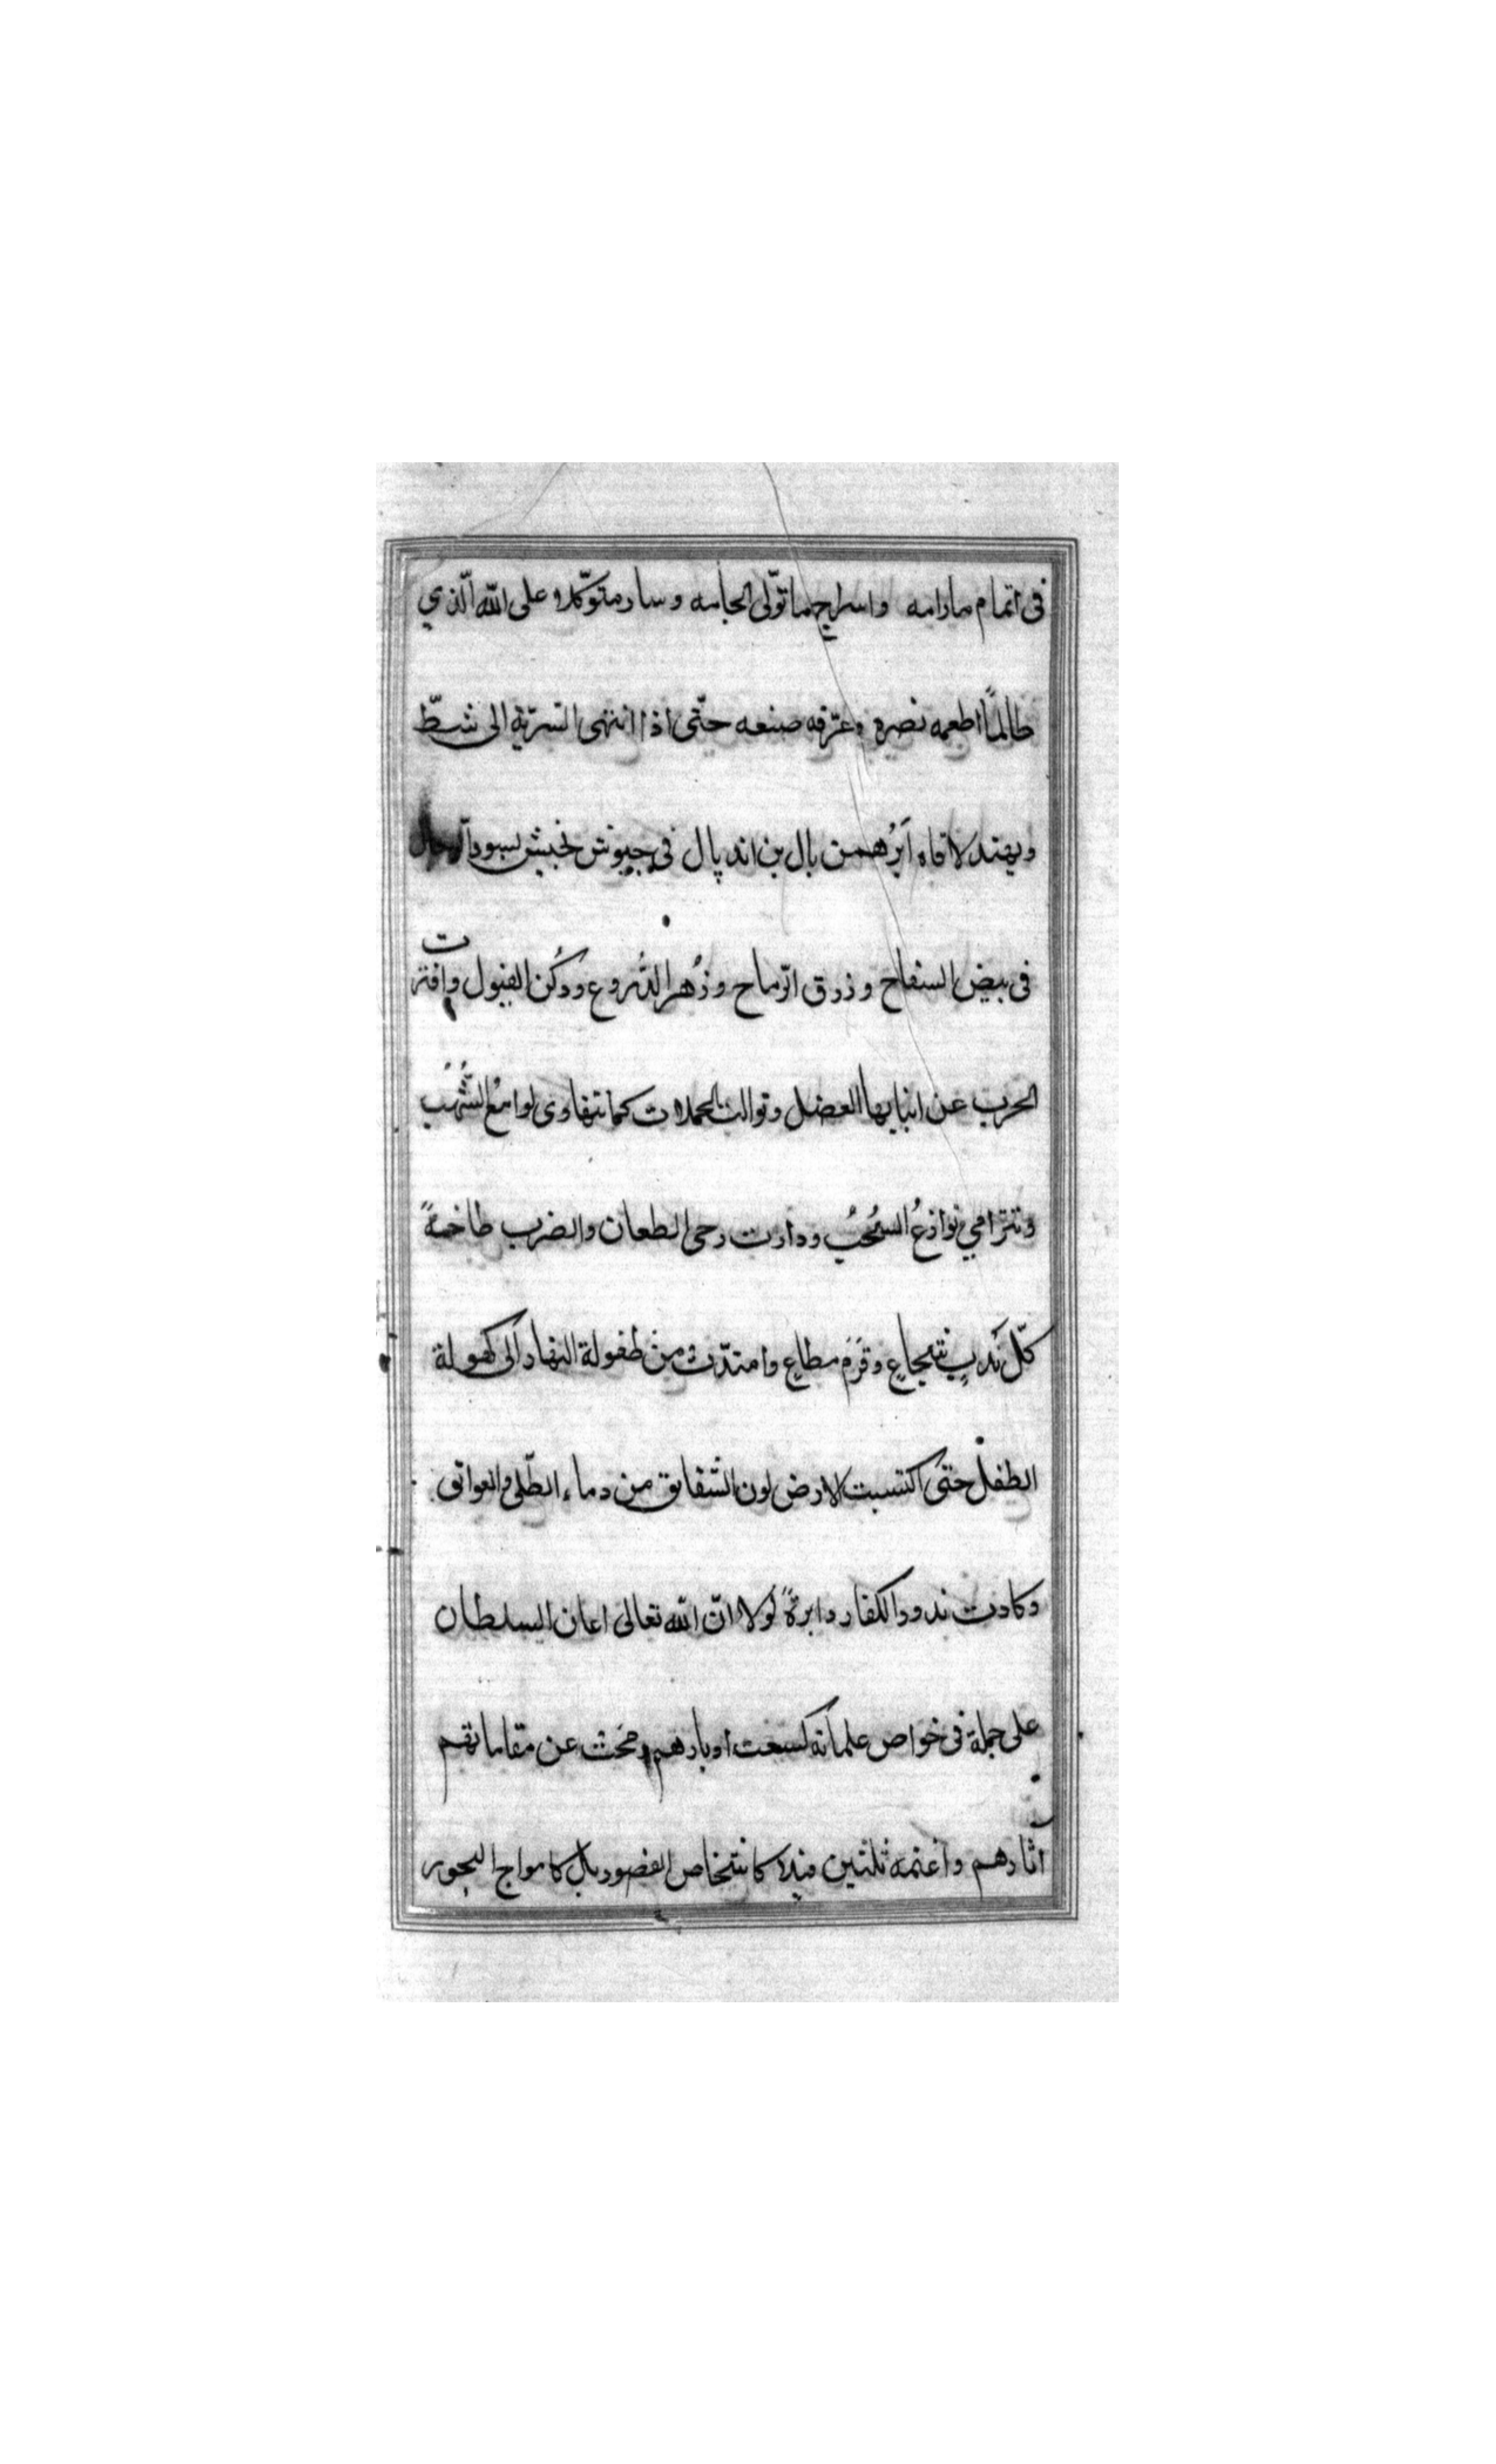 فى اتمام مارامه واسراج ماتولّى الجامه وسار متوكّلا على الله الّذي
طالماً اطعمه نصره وعرّفه صنعه حتّى اذا انتهى السّريّة الى شطّ
ويهند لاقاه اَبرُهمن بال بن اندپال فى جيوش تجيش بسود الرجال
فى بيض الصفاح وزرق الرّماح وزُهر الدُّروع ودُكن الفيول وافترت
الحرب عن انيابها العضل وتوالت الحملات كما تتهاوى لوامعُ الشُّهُب
وتترامي نوازعُ السُحُب ودارت رحى الطعان والضرب طاخمةً
كلّ نَدبٍ شجاعٍ وقَرم مطاعٍ وامتدّت من طفولة النهار الى كهولة
الطفل حتى اكتسبت الارض لون الشّقايق من دماء الطّلى والعواتق
وكادت ندود الكفار دابرةً لولا انّ الله تعالى اعان السلطان
على حملة فى خواص غلمانه كسعت ادبارهم ومحت عن مقاماتهم
آثارهم واغنمه ثلثين فيلا كاشخاص القصور بل كامواج البحور